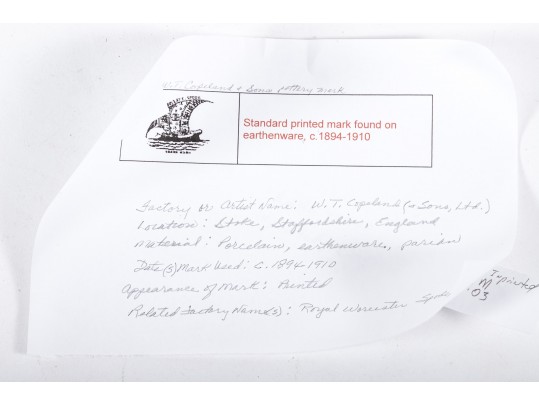 W.T. Copeland & Sons pottery mark
Standard printed mark found on
earthenware, c.1894-1910
Factory or Artist Name: W.T. Copeland (& Sons, Ltd.)
Location: Stoke, Staffordshire, England
Material: Porcelain, earthenware, parian
Date(s) Mark Used: c. 1894-1910
Appearance of Mark: Printed
Related Factory Name(s): Royal Worcester Spode
Imprinted
M
03